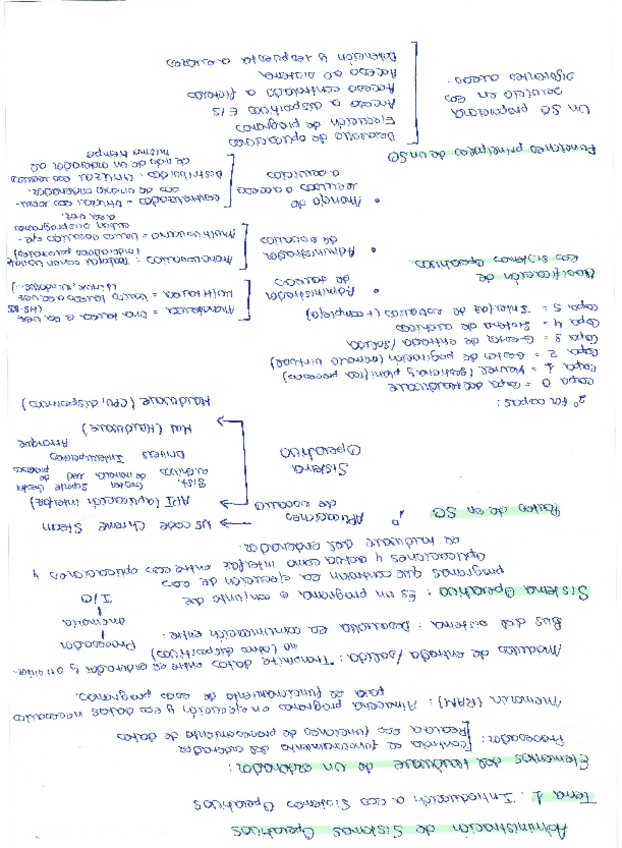 Administración de Sistemas Operativos
Tema 1. Introducción a los Sistemas Operativos
Elementos del Hardware de un ordenador:
Procesador: Controla el funcionamiento del ordenador
Realiza las funciones de procesamiento de datos
Memoria (RAM): Almacena programas en ejecución y los datos necesarios
para el funcionamiento de esos programas.
Módulos de entrada/salida: Transmite datos entre el ordenador y su
(otros dispositivos)
Bus del sistema: Desarrolla la comunicación entre:
Procesador
memoria
I/O
Sistema Operativo: Es un programa o conjunto de
programas que controlan la ejecución de los
aplicaciones y actúa como interfaz entre las aplicaciones y
el hardware del ordenador.
Partes de un SO
Aplicaciones
de usuario
VS code Chrome Steam
Sistema
Operativo
API (aplicación interfaz)
Sist. Gestor Soporte Gestor
archivos de memoria red de procesos
Drivers Interrupciones Arranque
HAL (Hardware)
Hardware (CPU, dispositivos)
2º Por capas:
Capa 0 = Capa del Hardware
Capa 1 = Kernel (gestiona y planifica procesos)
Capa 2 = Gestor de paginación (memoria virtual)
Capa 3 = Gestor de entrada/salida
Capa 4 = Sistema de archivos
Capa 5 = Interfaz de usuario (+ compleja)
Clasificación de
los Sistemas Operativos
• Administrador
de tareas
Monotarea = Una tarea a la vez
(MS-DOS)
Multitarea = Varias tareas a la vez
• Administrador
de usuarios
Monousuarios: Trabaja con un usuario
Multiusuario = Varios usuarios eje-
cutan sus programas
a la vez.
• Manejo de
recursos o acceso
a servicios
Centralizados = Utiliza los recur-
sos de un único ordenador.
Distribuidos: Utilizar los recursos
de más de un ordenador al
mismo tiempo
Funciones principales de un SO
Un SO proporciona
servicio en las
siguientes áreas:
Desarrollo de aplicaciones
Ejecución de programas
Acceso a dispositivos E/S
Acceso controlado a ficheros
Acceso al sistema
Detección y respuesta a errores